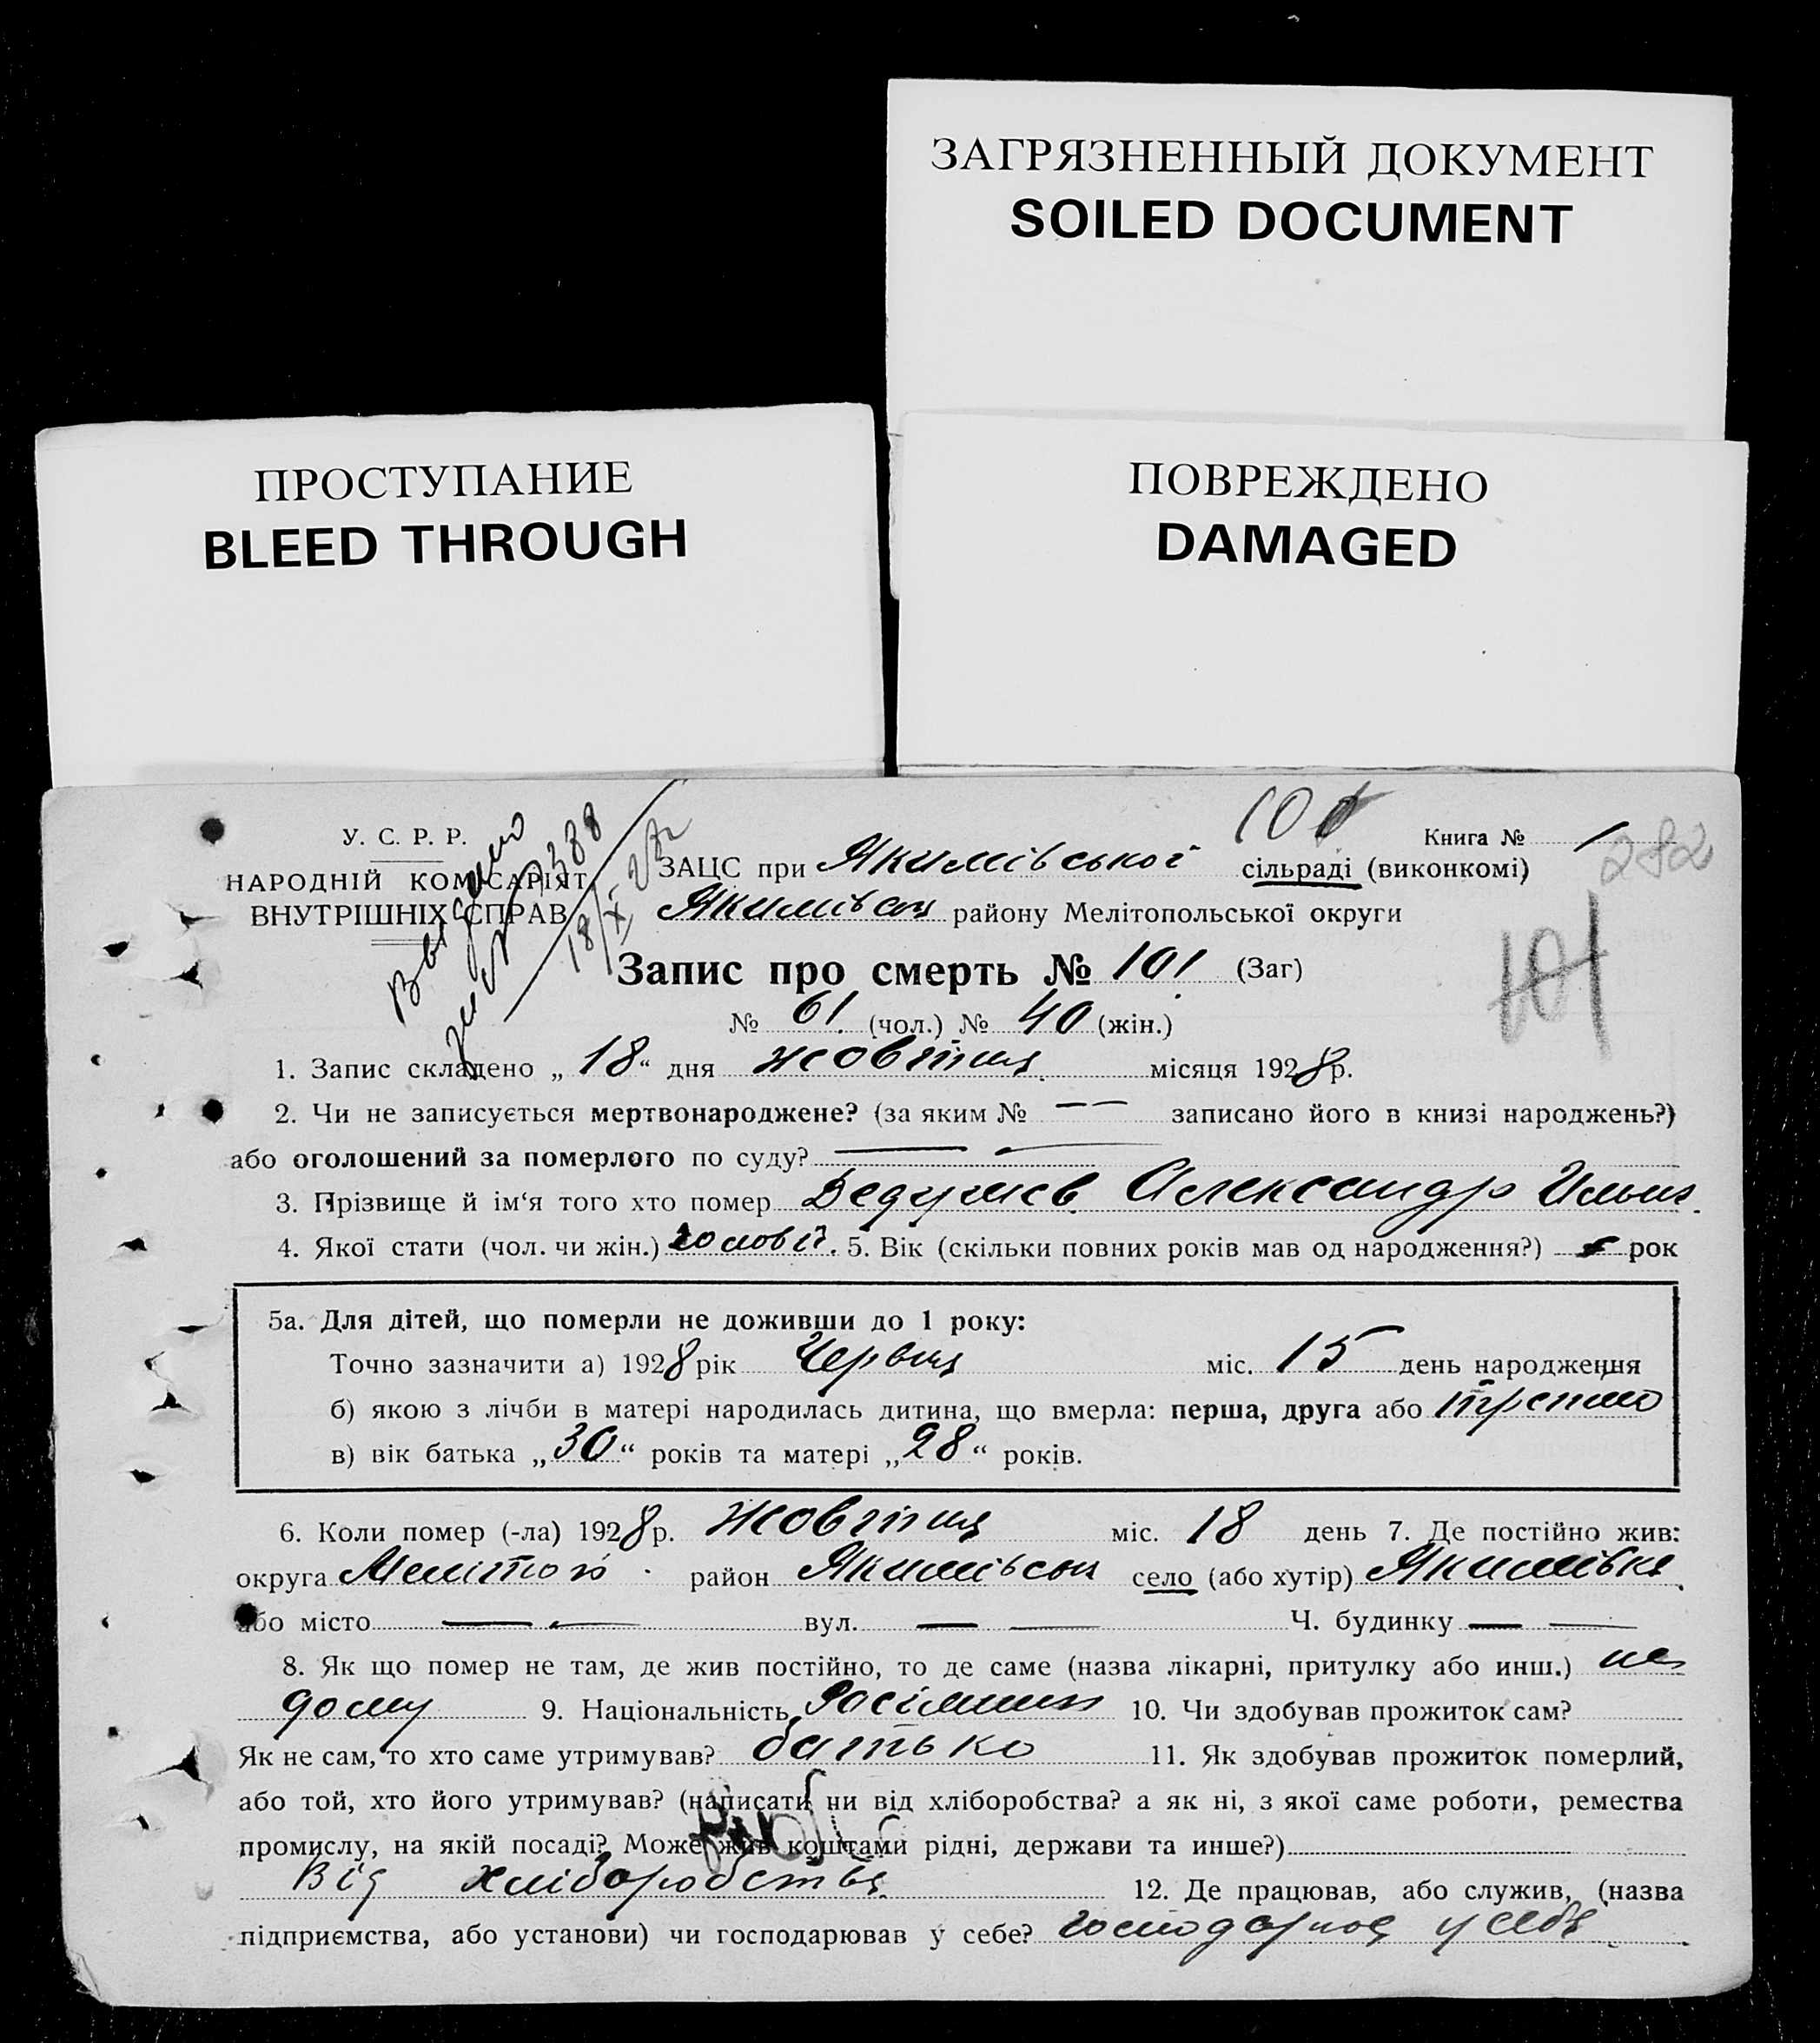 ЗАГРЯЗНЕННЫЙ ДОКУМЕНТ
SOILED DOCUMENT
ПРОСТУПАНИЕ
BLEED THROUGH
ПОВРЕЖДЕНО
DAMAGED
У. С. Р. Р.
НАРОДНІЙ КОМІСАРІЯТ
ВНУТРІШНІХ СПРАВ
Выдано
18/X-28
101
Книга № 1
282
ЗАЦС при Якимівської сільраді (виконкомі)
Якимівськ району Мелітопольської округи
101
Запис про смерть № 101 (Заг)
№ 61 (чол.) № 40 (жін.)
1. Запис складено „18“ дня жовтня місяця 1928 р.
2. Чи не записується мертвонароджене? (за яким № — — записано його в книзі народжень?)
або оголошений за померлого по суду? — —
3. Прізвище й ім‘я того хто помер Александр
4. Якої стати (чол. чи жін.) чоловіч. 5. Вік (скільки повних років мав од народження?) рок
5а. Для дітей, що померли не доживши до 1 року:
Точно зазначити а) 1928 рік Червня міс. 15 день народження
б) якою з лічби в матері народилась дитина, що вмерла: перша, друга або
в) вік батька „30“ років та матері „28“ років.
6. Коли помер (-ла) 1928 р. Жовтня міс. 18 день 7. Де постійно жив:
округа Мелітоп район Якимівськ село (або хутір) Якимівка
або місто — — вул. — — Ч. будинку — —
8. Як що помер не там, де жив постійно, то де саме (назва лікарні, притулку або инш.)
дому 9. Національність 10. Чи здобував прожиток сам?
Як не сам, то хто саме утримував? батько 11. Як здобував прожиток померлий,
або той, хто його утримував? (написати чи від хліборобства? а як ні, з якої саме роботи, ремества
промислу, на якій посаді? Може жив коштами рідні, держави та инше?)
Від хліборобства 12. Де працював, або служив, (назва
підприємства, або установи) чи господарював у себе? у себе